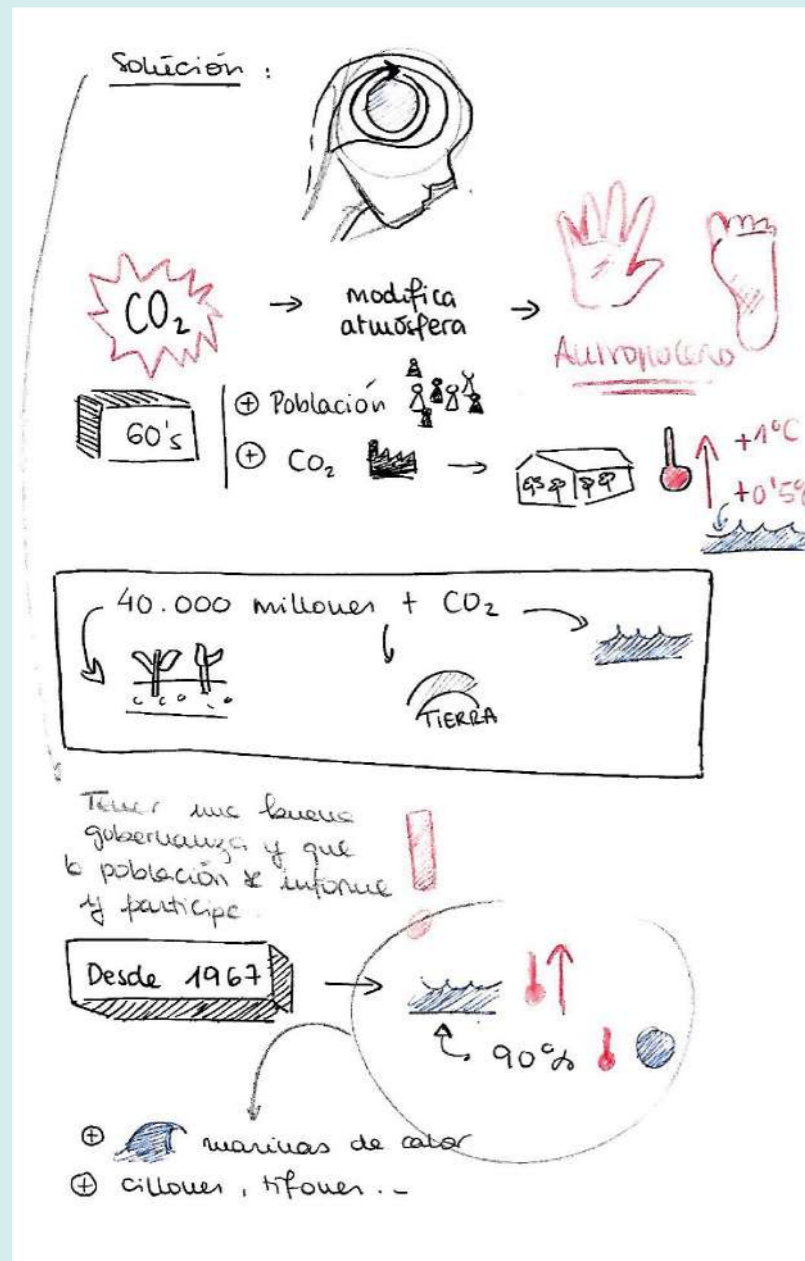 Solución :
CO₂ → modifica
atmósfera →
Antropoceno
60's
⊕ Población
⊕ CO₂ →
+1°C
+0'5°
40.000 millones + CO₂
TIERRA
Tener una buena
gobernanza y que
la población se informe
y participe.
Desde 1967 →
90%
⊕ marinas de calor
⊕ ciclones, tifones..